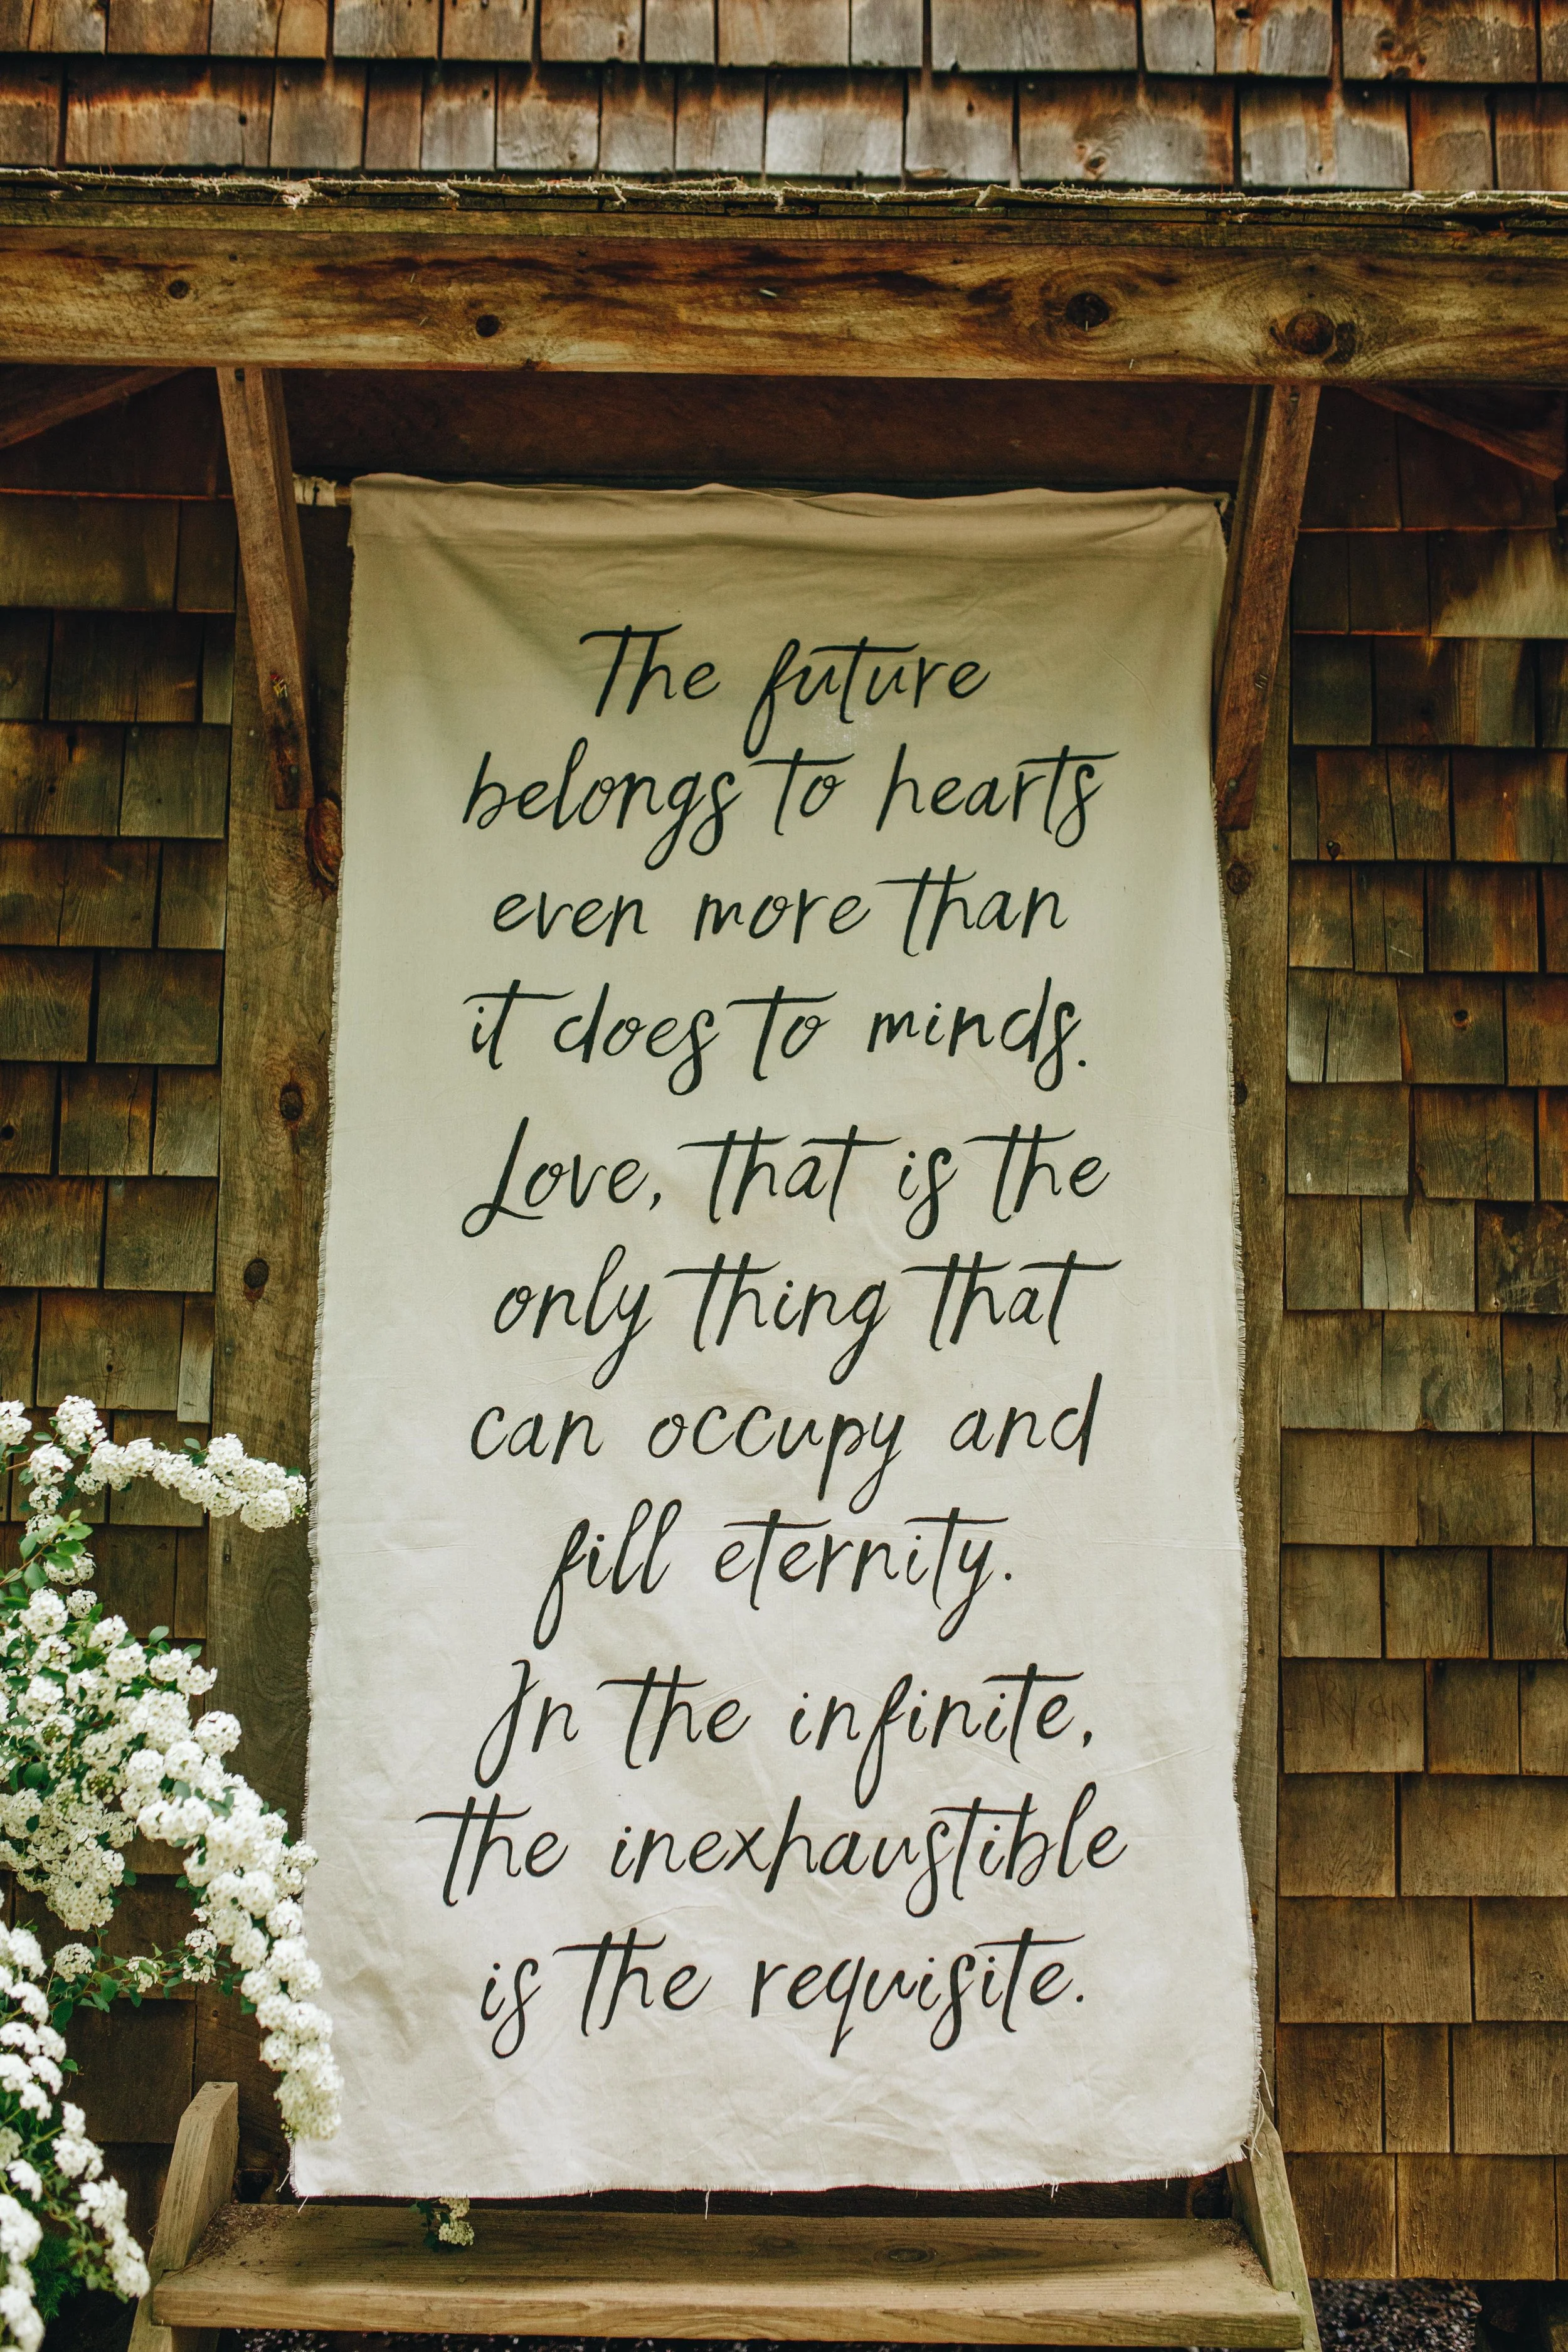 The future
belongs to hearts
even more than
it does to minds.
Love, that is the
only thing that
can occupy and
fill eternity.
In the infinite,
the inexhaustible
is the requisite.